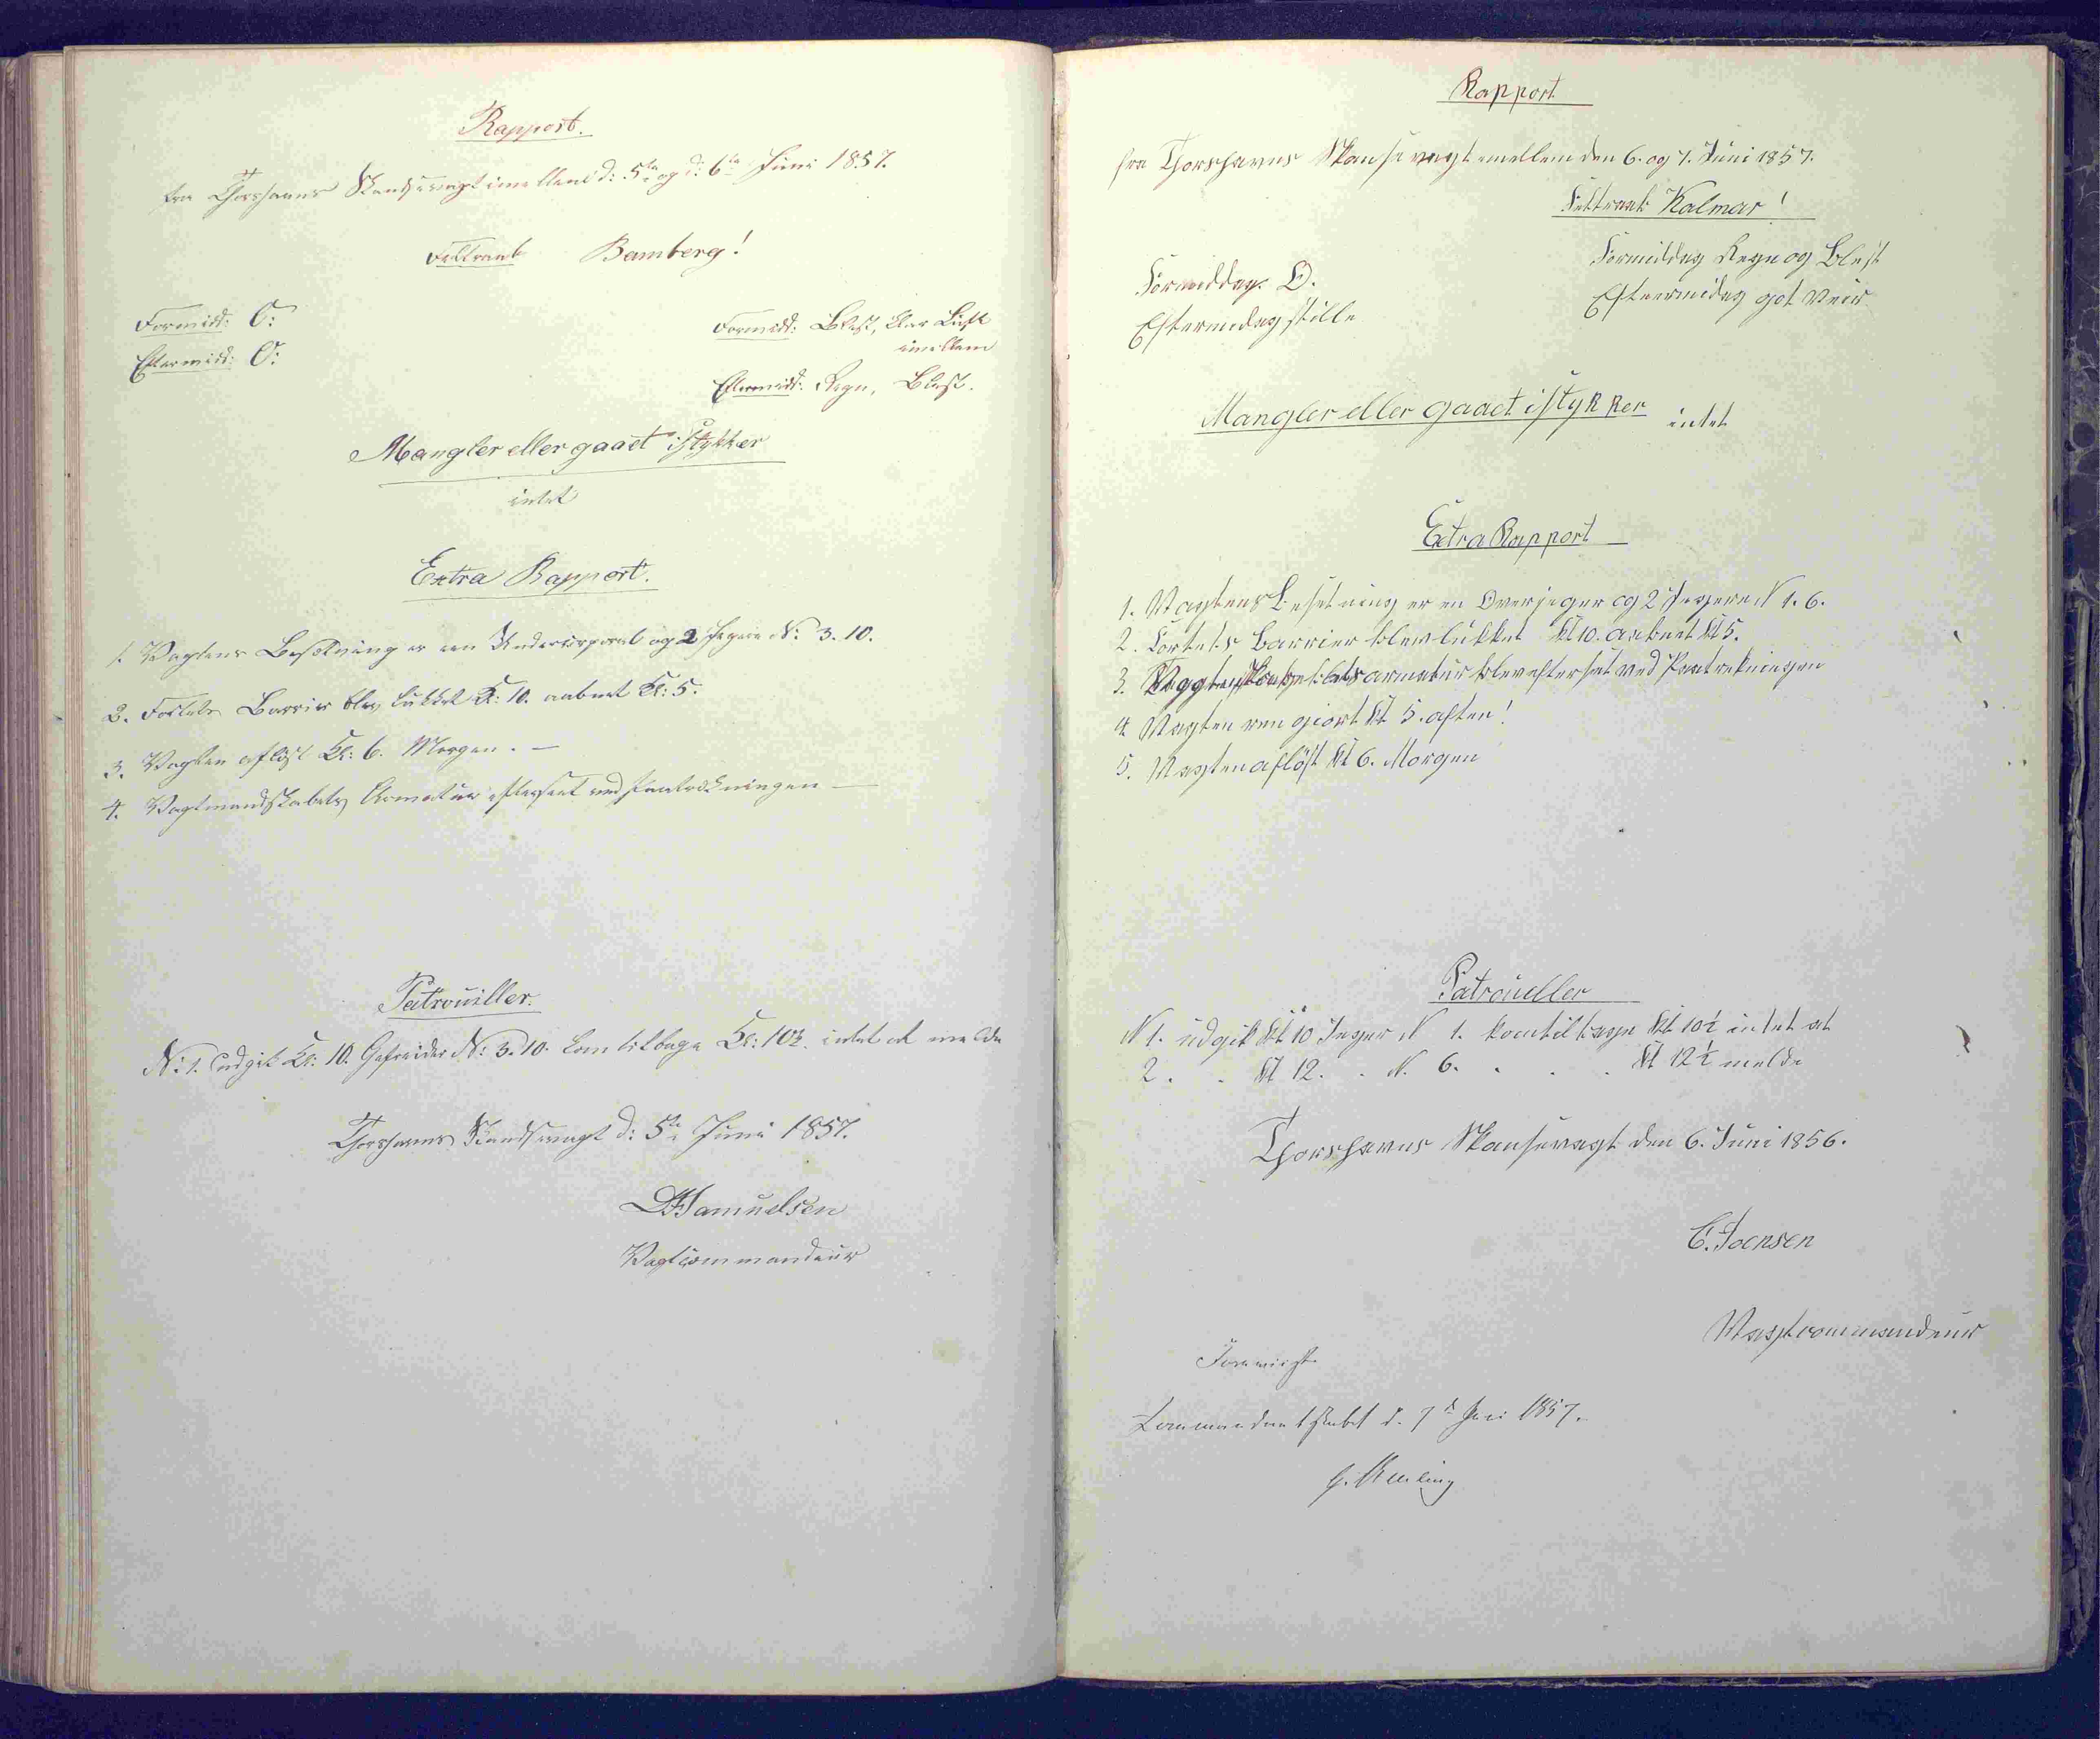 Rapport.
fra Thorshavns Skandsevagt imellem d: 5te og d: 6te Juni 1857.
Feltraab Bamberg!
Formidd: O:
Eftermidd: O:
Formidd: Blæst, klar Luft
imellem
Eftermidd: Regn, Blæst.
Mangler eller gaaet istykker
intet
Extra Rapport.
1. Vagtens Besætning er een Undercorporal og 2 Jegere N: 3. 10.
2. Fortets Barrier blev lukket Kl: 10. aabnet Kl: 5.
3. Vagten afløst Kl: 6. Morgen. —
4. Vagtmandskabets Armatur efterseet ved Fratrædningen —
Patrouiller.
N: 1. udgik Kl: 10. Gefreider N: 3. 10. kom tilbage Kl: 10½. intet at melde
Thorshavns Skandsevagt d: 5te Juni 1857.
Samuelsen
Vagtcommandeur
Rapport
fra Thorshavns Skansevagt emellem den 6. og 7. Juni 1857.
Feltraab Kalmar!
Formiddag O.
Eftermidag stille
Formiddag Regn og Blest
Eftermidag got Veir
Mangler eller gaaet istykker intet
Extra Rapport
1. Vagtens Besetning er en Overjeger og 2 Jegere N 1. 6.
2. Fortets Barrier blev lukket Kl 10. aabnet Kl 5.
3. armatur blev efterset ved
4. Vagten ren giort Kl 5. aften!
5. Vagten aflöst Kl 6. Morgen
Patrouller
N 1. udgik Kl 10 Jeger N 1. kom tilbage Kl 10½ intet at
2. . Kl 12. . N. 6. . . . Kl 12½ melde
Thorshavns Skansevagt den 6. Juni 1856.
C. Joensen
Vagtcommandeur
Foreviist
Commandantskabet d. 7de Juni 1857.